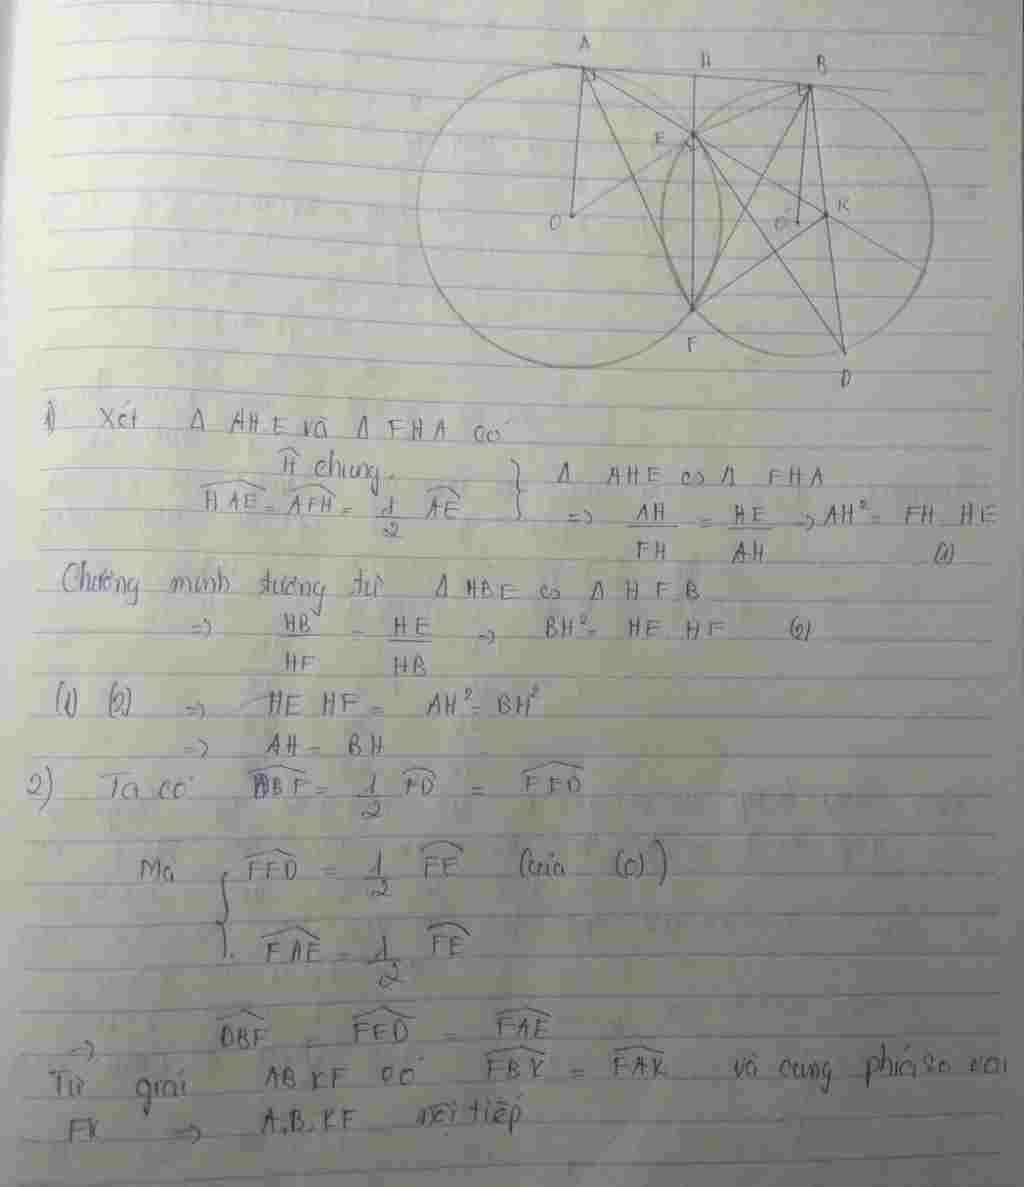 A H B
E
O O' K
F
D
1) Xét Δ AHE và Δ FHA có
Ĥ chung.
HAE = AFH = 1/2 AE } Δ AHE ∽ Δ FHA
=> AH/FH = HE/AH => AH² = FH HE (1)
Chứng minh tương tự Δ HBE ∽ Δ HFB
=> HB/HF = HE/HB => BH² = HE HF (2)
(1) (2) => HE HF = AH² = BH²
=> AH = BH
2) Ta có DBF = 1/2 FD = FED
Mà { FED = 1/2 FE (của (O))
FAE = 1/2 FE
=> DBF = FED = FAE
Tứ giác ABKF có FBK = FAK và cùng phía so với
FK => A,B,KF nội tiếp